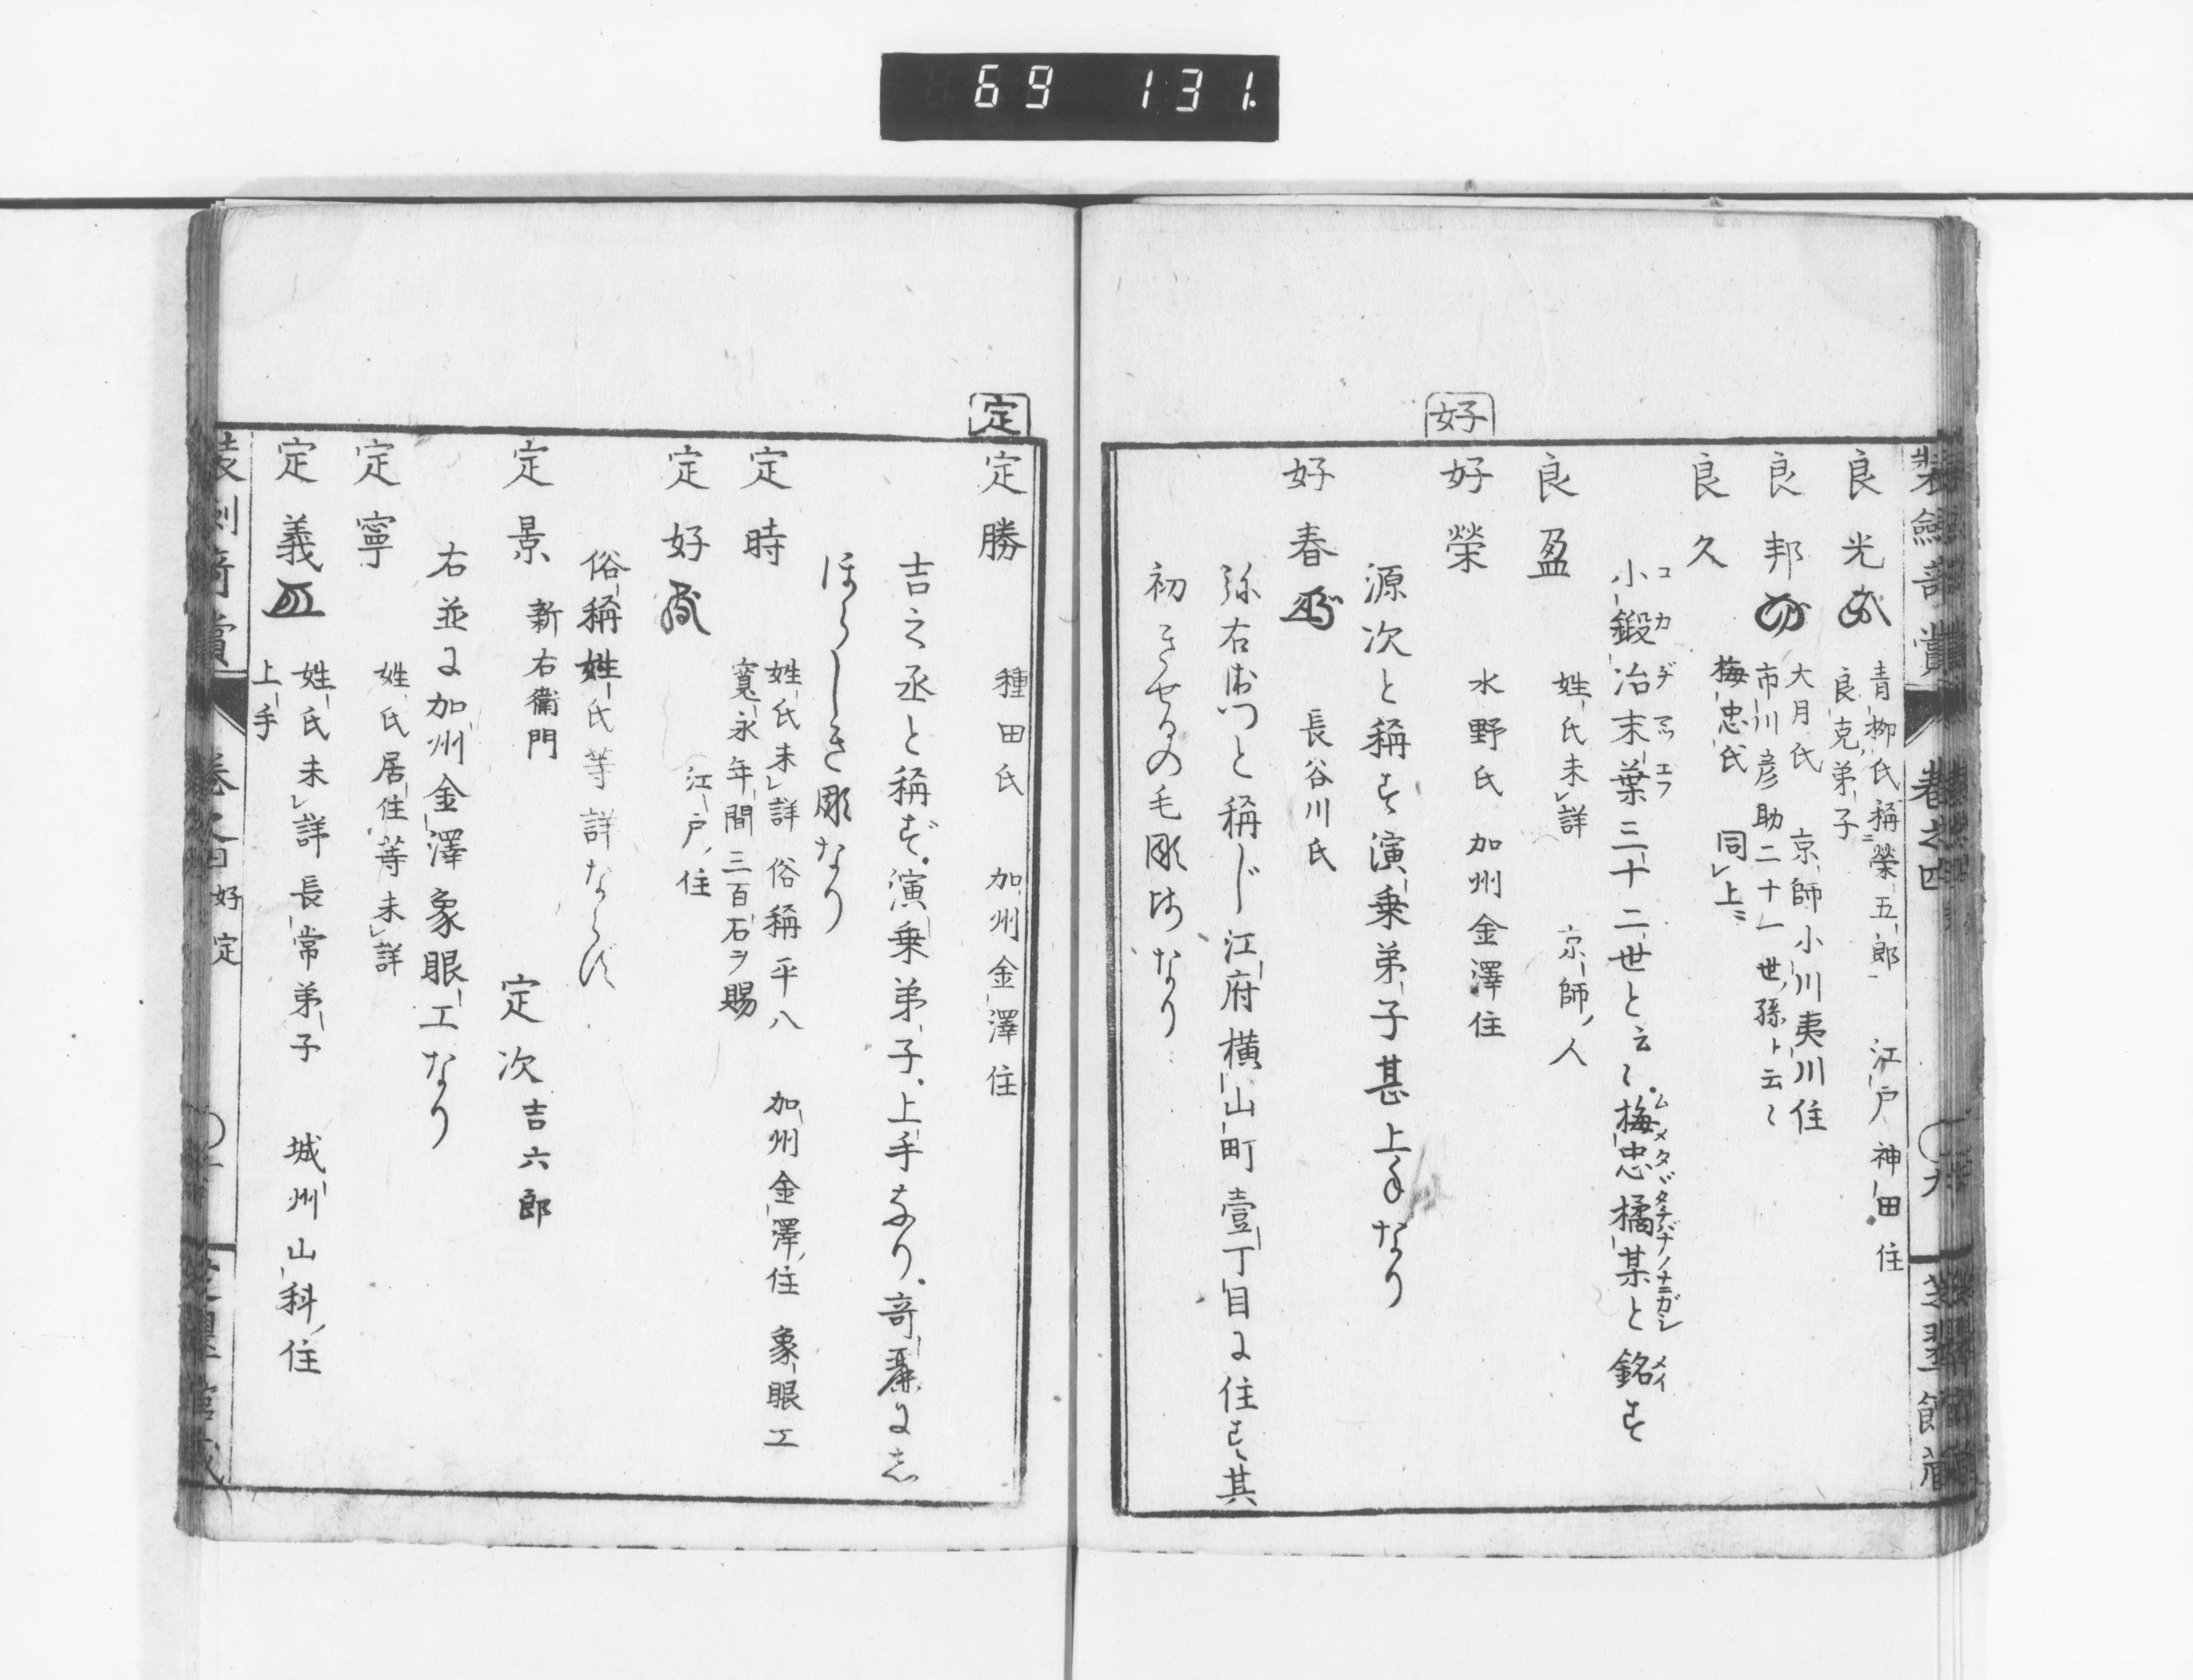 69 131.
良光 青柳氏稱榮五郎 江戸神田住
良克弟子
良邦 大月氏 京師小川夷川住
市川彦助二十一世ノ孫ト云々
良久 梅忠氏 同レ上ニ
小鍛冶末葉三十二世と云々梅忠橘某と銘す
コカヂマツエフ ムメタヾタチバナノナニガシ メイ
良盈 姓氏未レ詳 京師ノ人
好
好榮 水野氏 加州金澤住
源次と稱す演乗弟子甚上手なり
好春 長谷川氏
弥右衛門と稱し江府横山町壹丁目に住す其
初きせるの毛彫師なり
定
定勝 種田氏 加州金澤住
吉之丞と稱ず演乗弟子上手なり奇麗に志
ほらしき彫なり
定時 姓氏未レ詳 俗稱平八 加州金澤ノ住 象眼工
寛永年間三百石ヲ賜
定好 江戸ノ住
俗稱姓氏等詳ならず
定景 新右衛門 定次 吉六郎
右並に加州金澤象眼工なり
定寧 姓氏居住等未レ詳
定義 姓氏未レ詳 長常弟子 城州山科ノ住
上手
好定